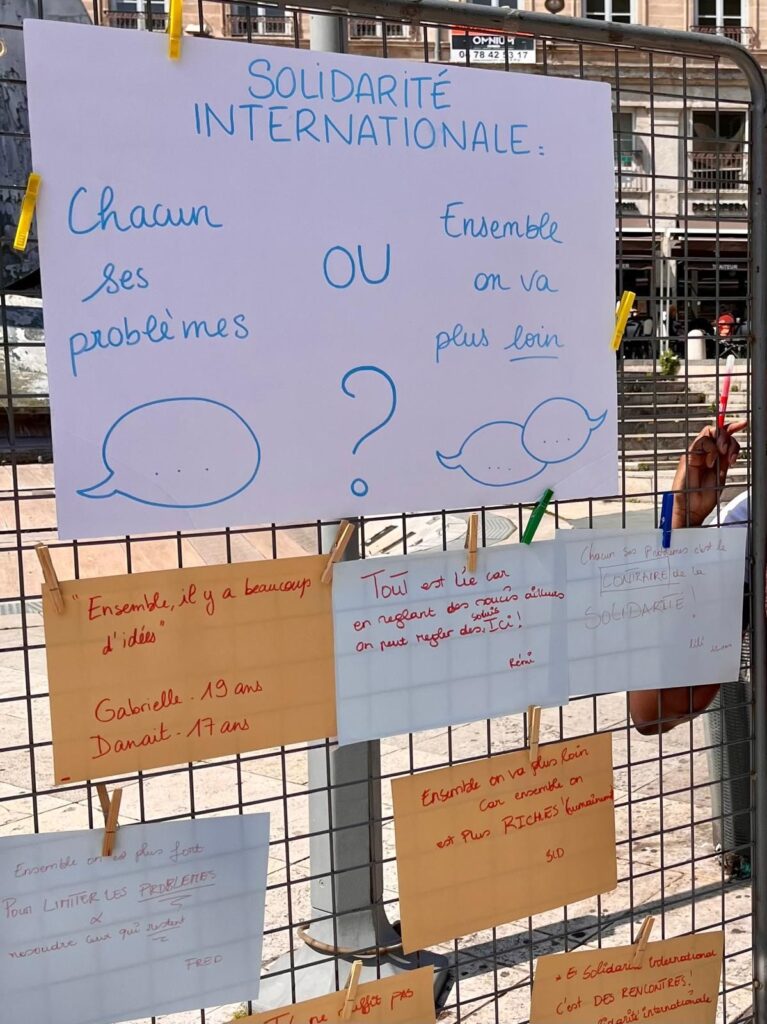 OMNIUM
04 78 42 53 17
SOLIDARITÉ
INTERNATIONALE :
Chacun
ses
problèmes
OU
?
Ensemble
on va
plus loin
"Ensemble, il y a beaucoup
d'idées"
Gabrielle - 19 ans
Danait - 17 ans
TOUT est lié car
en reglant des soucis ailleurs
on peut regler des soucis Ici !
Rémi
Chacun ses Problèmes c'est le
CONTRAIRE de la
SOLIDARITÉ !
Ensemble on va plus loin
car ensemble on
est Plus RICHES humainement
SID
Ensemble on est plus fort
Pour LIMITER LES PROBLEMES
resoudre ceux qui restent
FRED
suffit PAS
Solidarité International
C'est DES RENCONTRES!
solidarité internationale